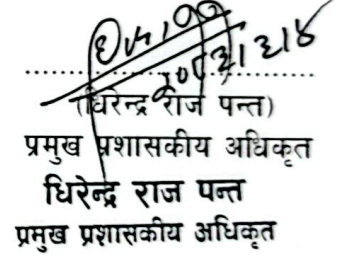 (धिरेन्द्र राज पन्त)
प्रमुख प्रशासकीय अधिकृत
धिरेन्द्र राज पन्त
प्रमुख प्रशासकीय अधिकृत